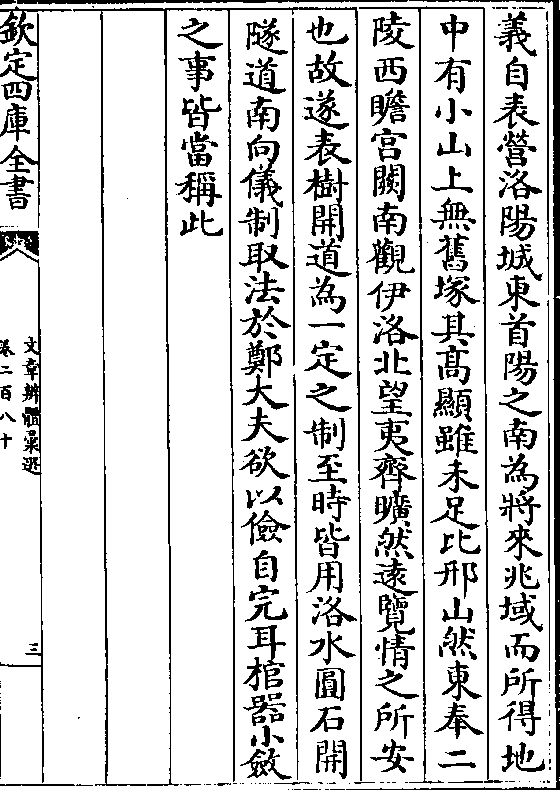 義自表營洛陽城東首陽之南為將來兆域而所得地
中有小山上無舊塚其髙顯雖未足比邢山然東奉二
陵西瞻宫闕南觀伊洛北望夷齊曠然遠覽情之所安
也故遂表樹開道為一定之制至時皆用洛水圓石開
隧道南向儀制取法於鄭大夫欲以儉自完耳棺器小斂
之事皆當稱此
欽定四庫全書
文章辨體彚選
卷二百八十
三